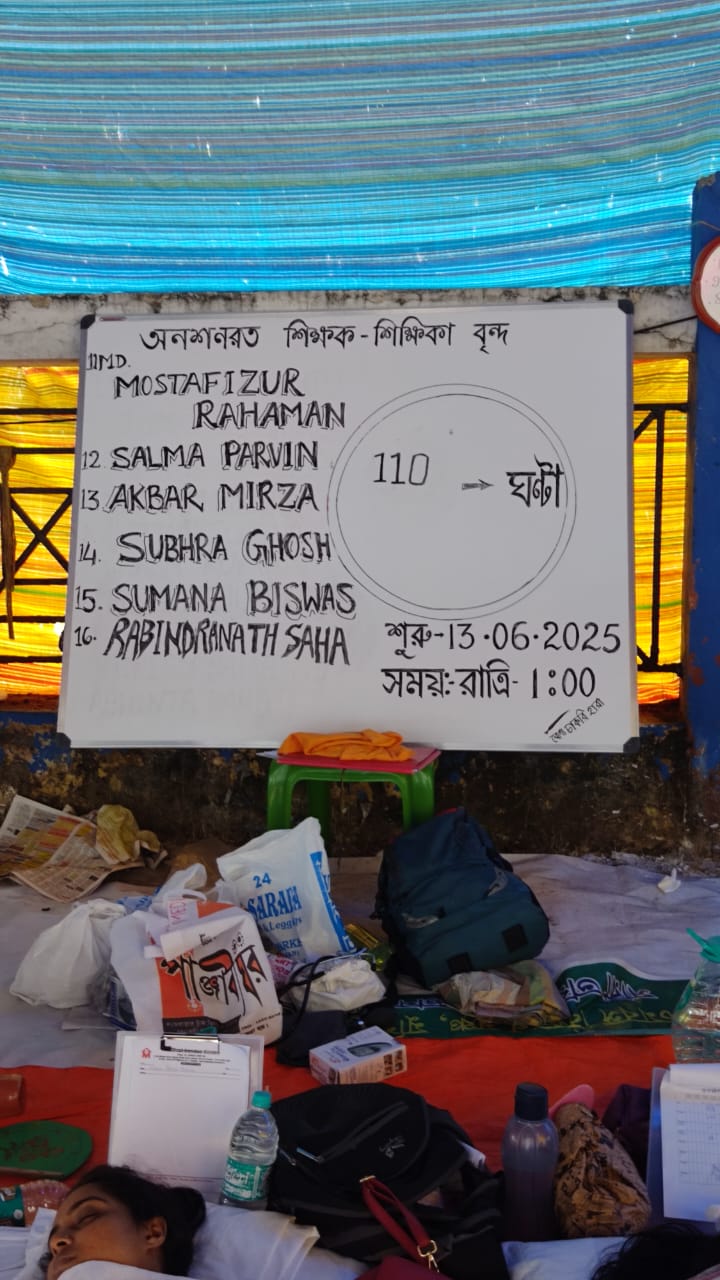 অনশনরত শিক্ষক - শিক্ষিকা বৃন্দ
11 MD.
MOSTAFIZUR
RAHAMAN
12 SALMA PARVIN
13 AKBAR MIRZA
14. SUBHRA GHOSH
15. SUMANA BISWAS
16. RABINDRANATH SAHA
110 → ঘণ্টা
শুরু-13.06.2025
সময়:-রাত্রি- 1:00
যোগ্য চাকরি হারা
24
পাঞ্জাবীর